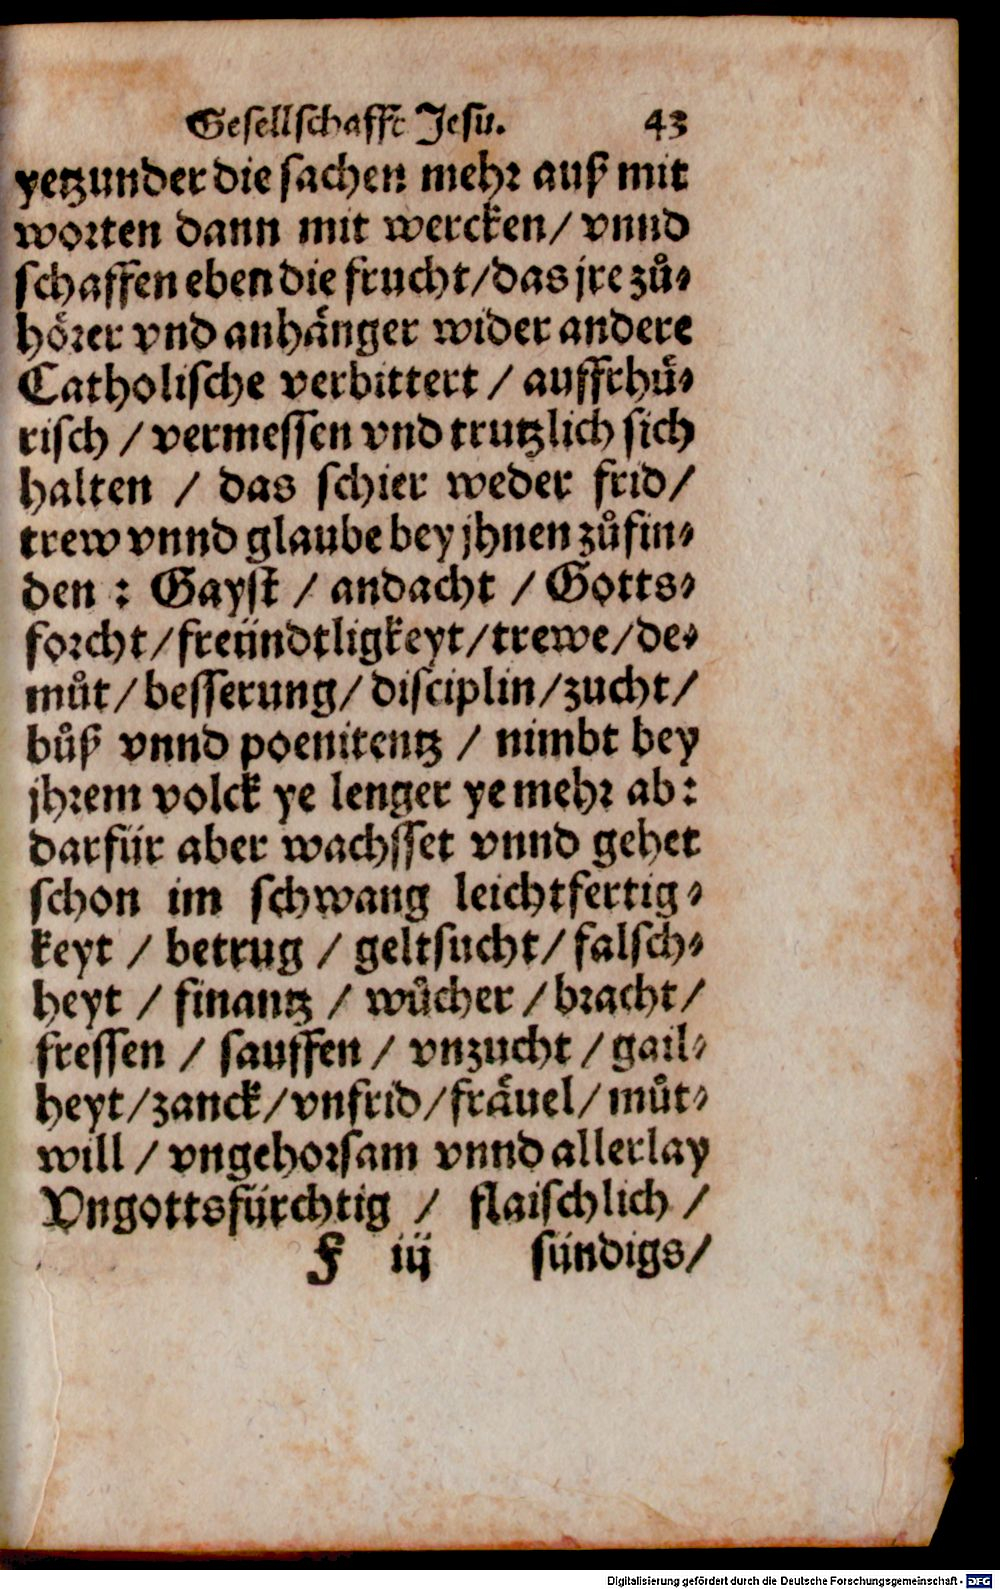 Gesellschafft Jesu. 43
yetzunder die sachen mehr auß mit
worten dann mit wercken / vnnd
schaffen eben die frucht / das jre zů-
hörer vnd anhänger wider andere
Catholische verbittert / auffrhü-
risch / vermessen vnd trutzlich sich
halten / das schier weder frid /
trew vnnd glaube bey jhnen zůfin-
den : Gayst / andacht / Gotts-
forcht / freündtligkeyt / trewe / de-
můt / besserung / disciplin / zucht /
bůß vnnd poenitentz / nimbt bey
jhrem volck ye lenger ye mehr ab :
darfür aber wachsset vnnd gehet
schon im schwang leichtfertig-
keyt / betrug / geltsucht / falsch-
heyt / finantz / wůcher / bracht /
fressen / sauffen / vnzucht / gail-
heyt / zanck / vnfrid / fräuel / můt-
will / vngehorsam vnnd allerlay
Vngottsfürchtig / flaischlich /
F iij sündigs /
Digitalisierung gefördert durch die Deutsche Forschungsgemeinschaft - DFG